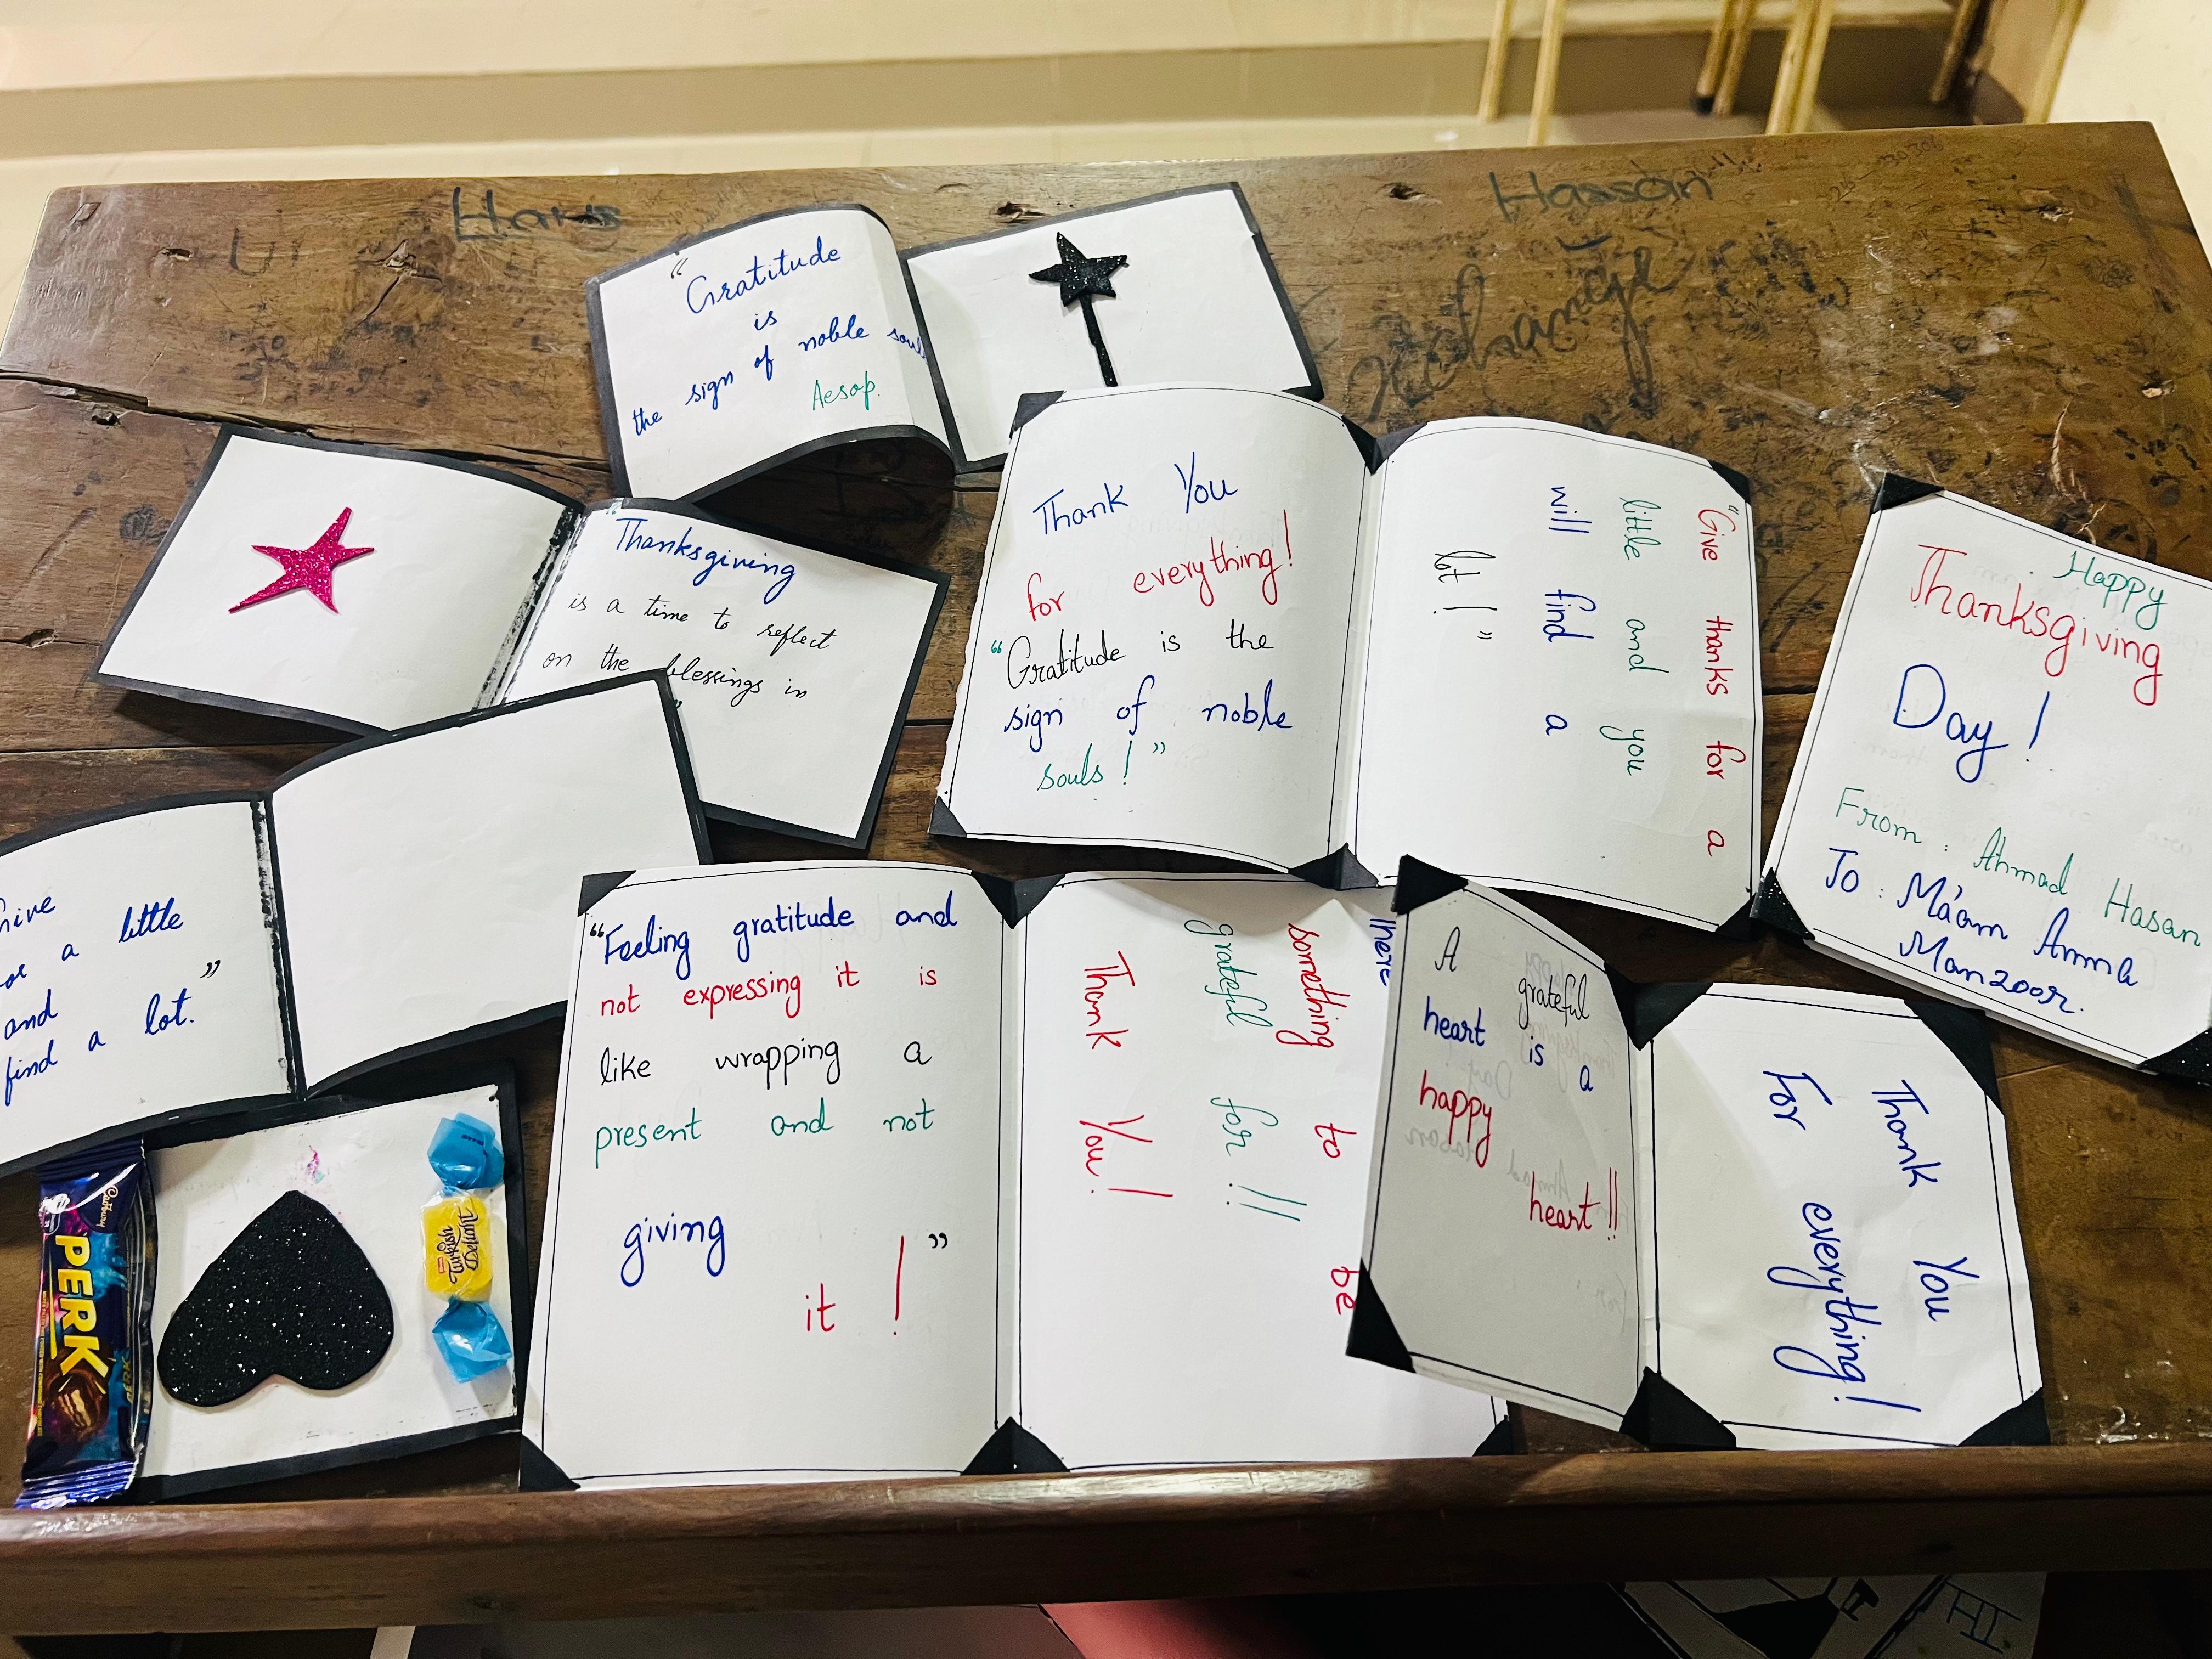 Haris
Hassan
Xchange
"Gratitude
is
the sign of noble soul
Aesop.
"Thanksgiving
is a time to reflect
on the blessings in
"
a little
and
find a lot."
Thank You
for everything!
"Gratitude is the
sign of noble
souls!"
"Give thanks for a
little and you
will find a
lot!"
Happy
Thanksgiving
Day!
From: Ahmad Hasan
To: Ma'am Amna
Manzoor.
"Feeling gratitude and
not expressing it is
like wrapping a
present and not
giving
it!"
There
something to be
grateful for!!
Thank You!
A grateful
heart is a
happy
heart!!
Thank You
For everything!
Cadbury
PERK
Turkish
Delight